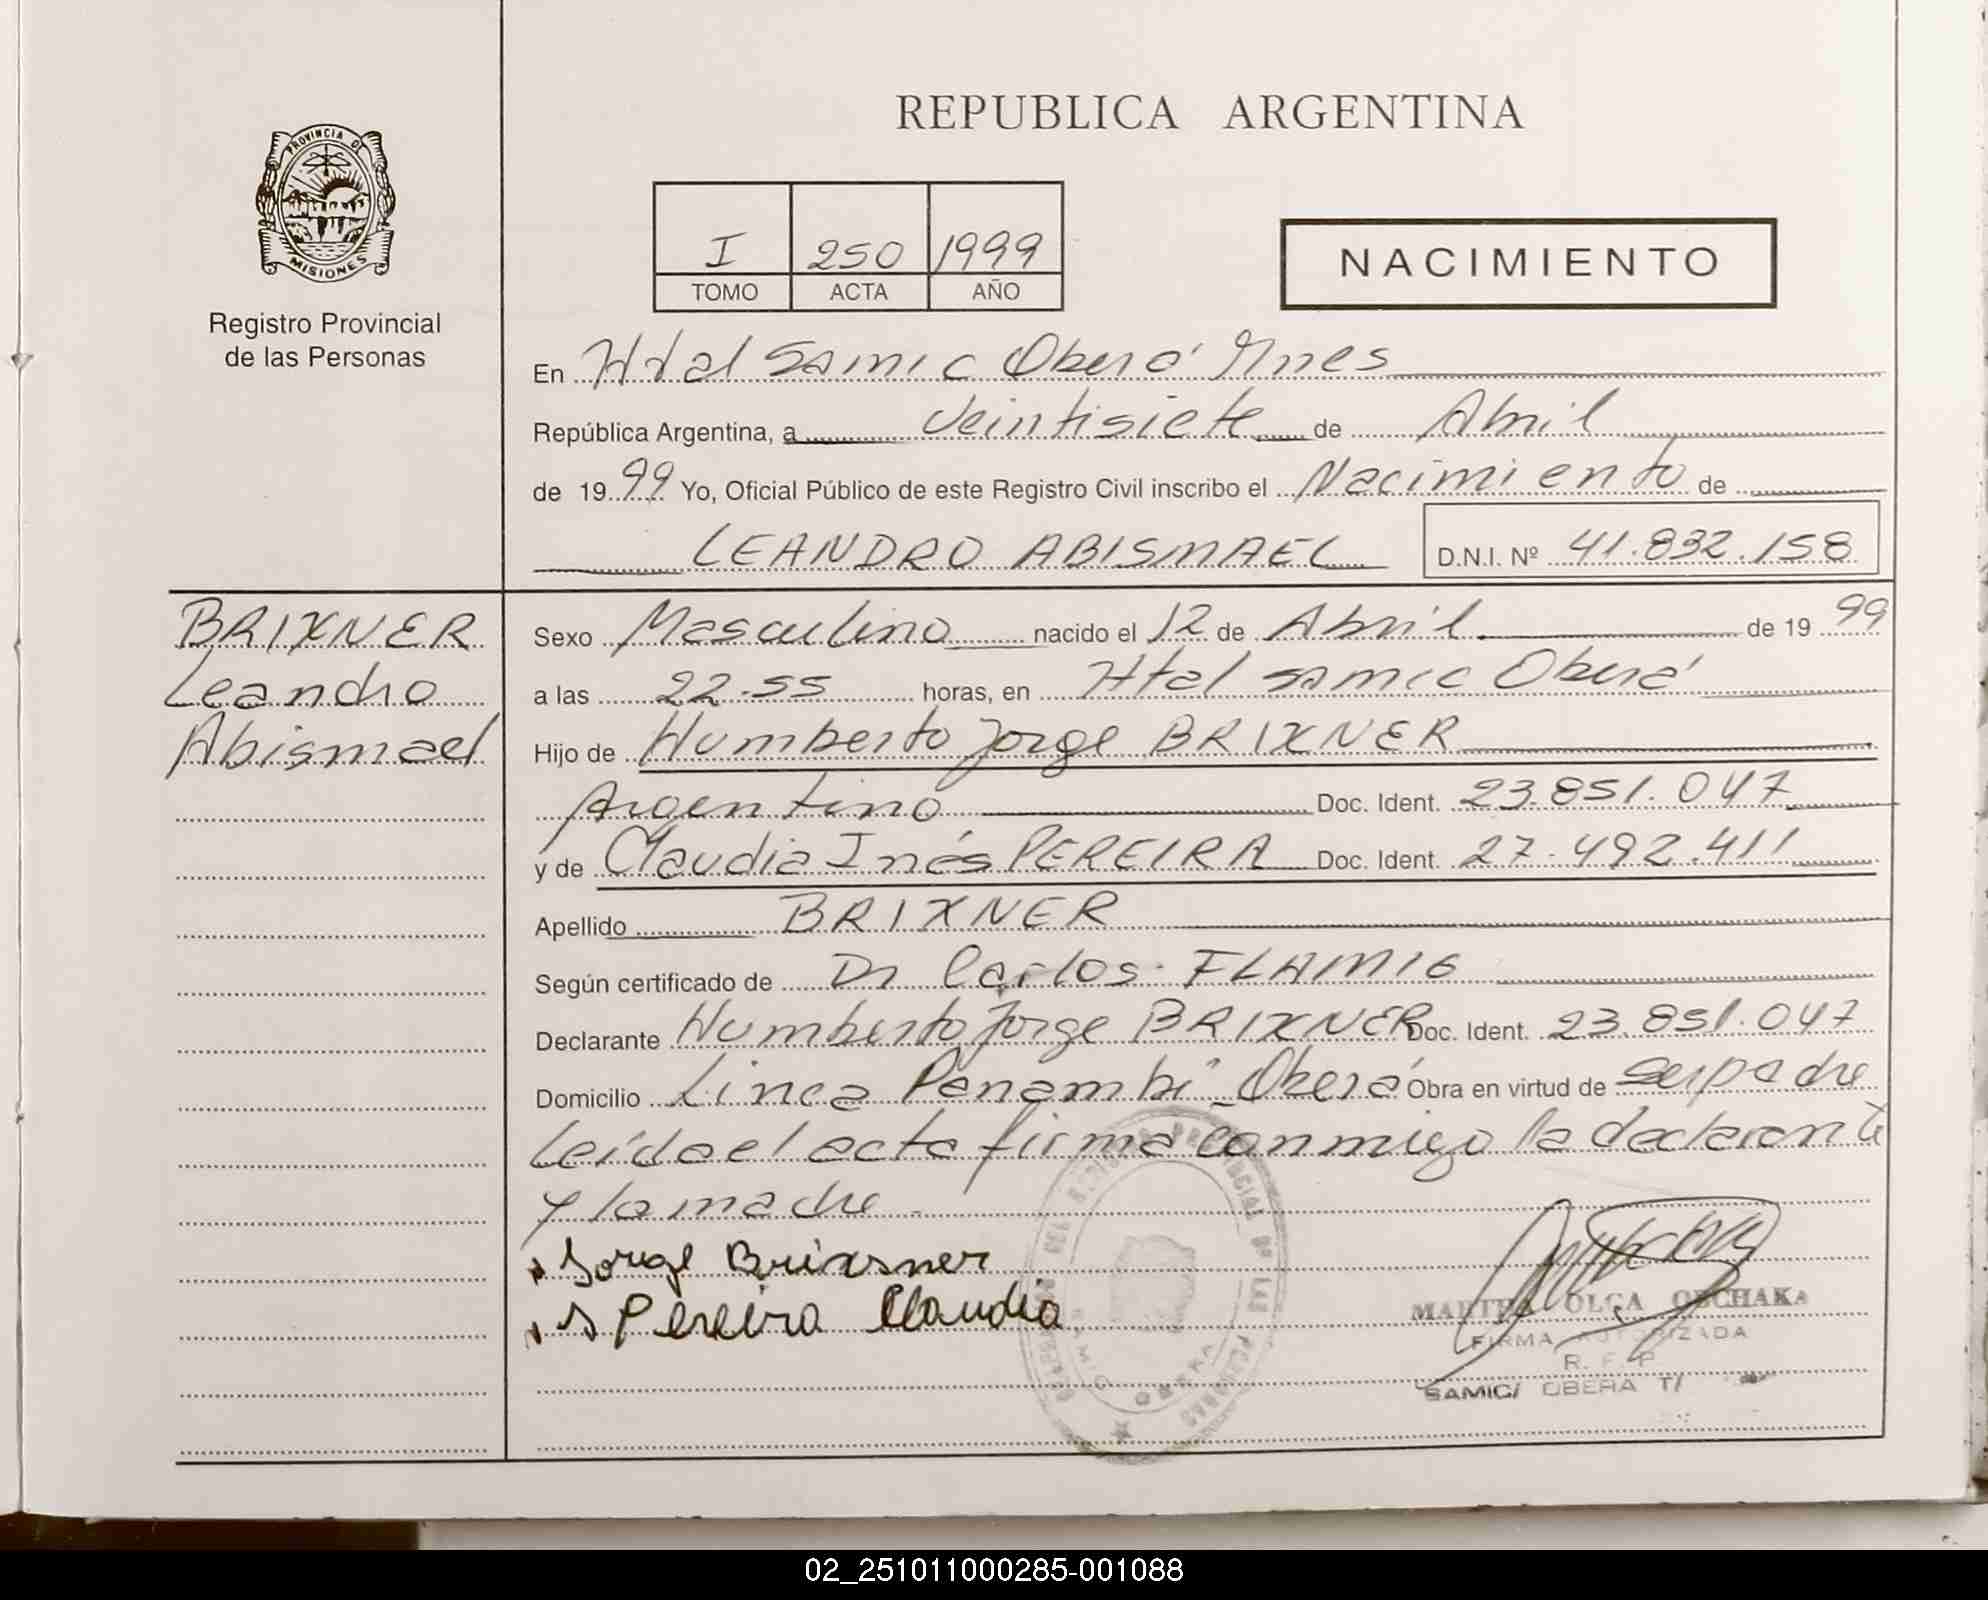 REPUBLICA ARGENTINA
PROVINCIA DE
MISIONES
Registro Provincial
de las Personas
I 250 1999
TOMO ACTA AÑO
NACIMIENTO
En Htal Samic Oberá Mnes
República Argentina, a Veintisiete de Abril
de 1999 Yo, Oficial Público de este Registro Civil inscribo el Nacimiento de
LEANDRO ABISMAEL D.N.I. Nº 41.832.158
BRIXNER
Leandro
Abismael
Sexo Masculino nacido el 12 de Abril de 1999
a las 22.55 horas, en Htal Samic Oberá
Hijo de Humberto Jorge BRIXNER
Argentino Doc. Ident. 23.851.047
y de Claudia Inés PEREIRA Doc. Ident. 27.492.411
Apellido BRIXNER
Según certificado de Dr Carlos FLAMIG
Declarante Humberto Jorge BRIXNER Doc. Ident. 23.851.047
Domicilio Linea Panambi _ Oberá Obra en virtud de ser padre
Leída el acta firma conmigo la declarante
y la madre
Jorge Brixsner
Pereira Claudia
MARTHA OLGA OBCHAKA
FIRMA AUTORIZADA
R. P. P
SAMIC/ OBERA T/
OBERA
02_251011000285-001088